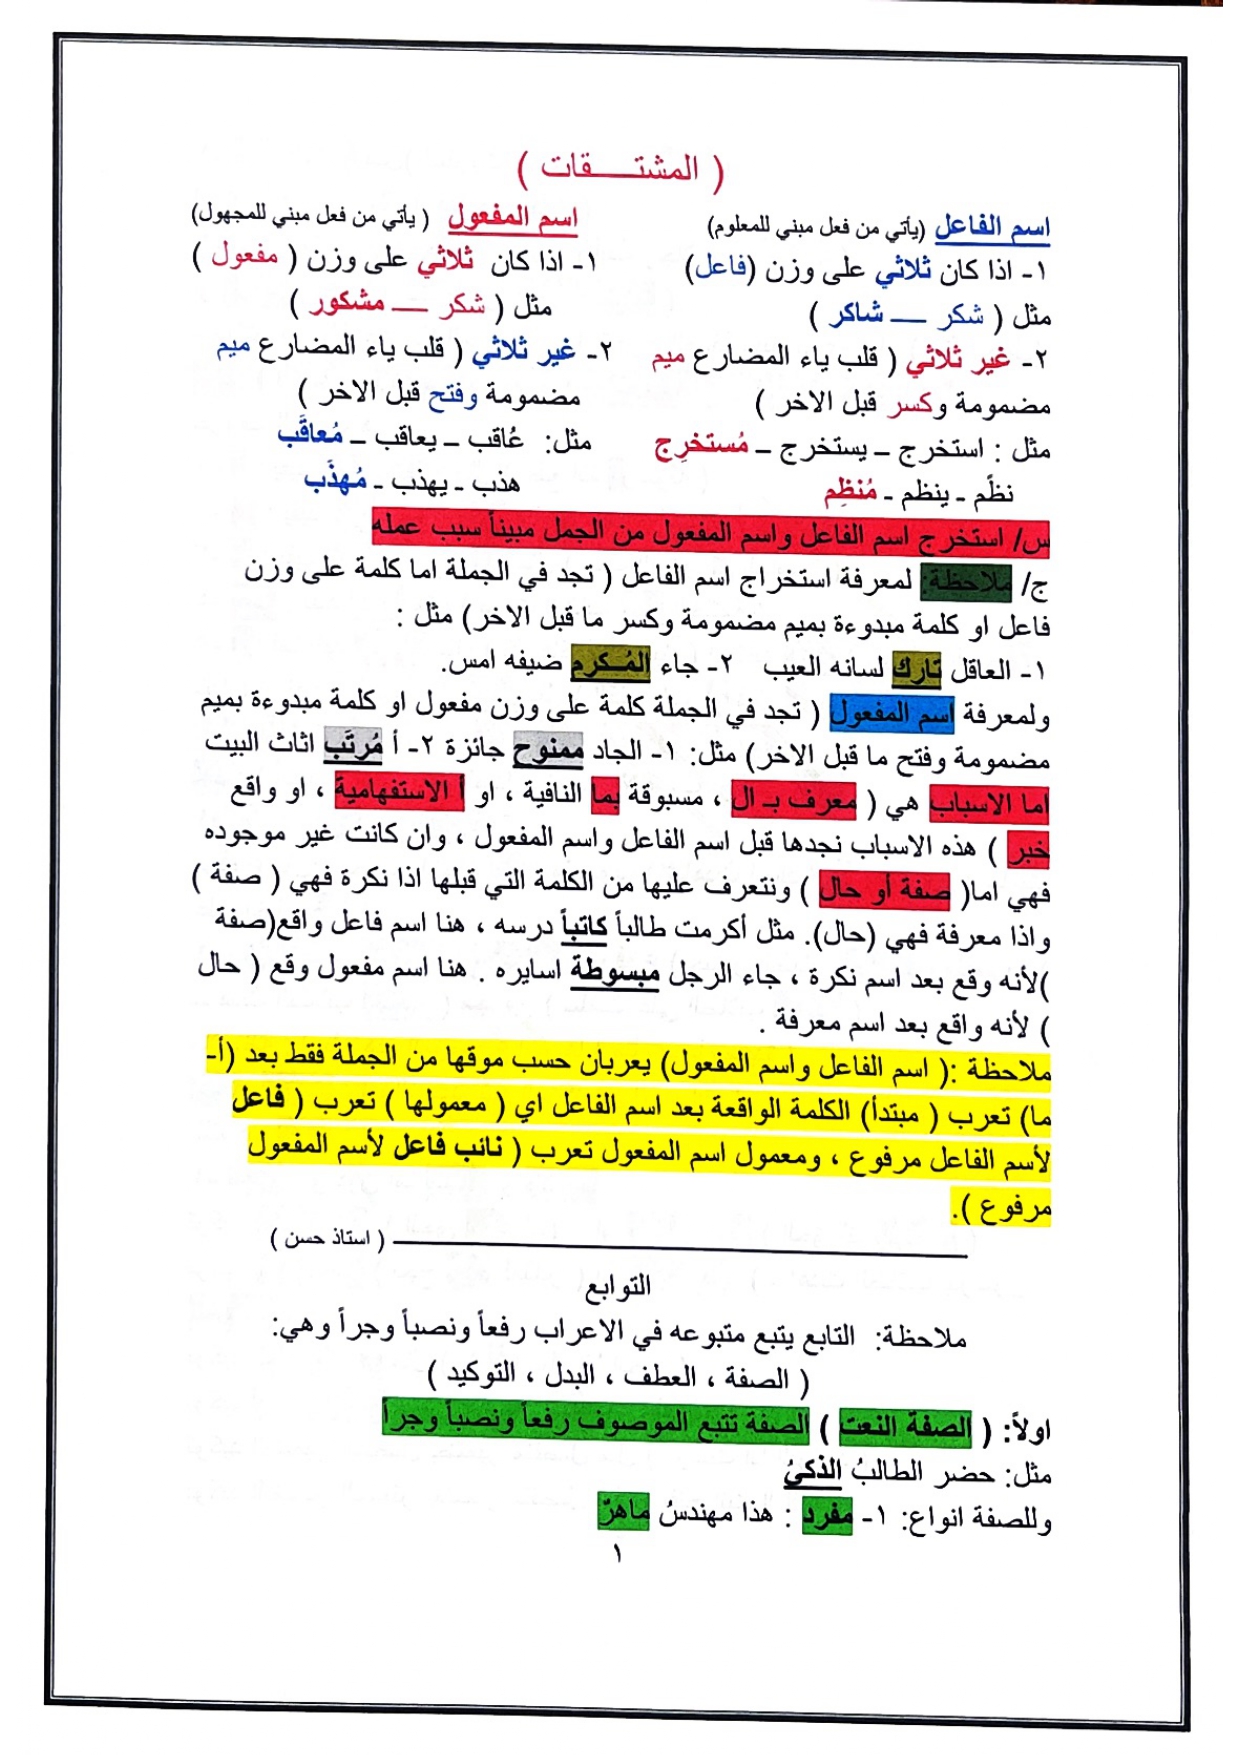 ( المشتـــــقات )
اسم الفاعل (يأتي من فعل مبني للمعلوم) اسم المفعول ( يأتي من فعل مبني للمجهول)
١- اذا كان ثلاثي على وزن (فاعل) ١- اذا كان ثلاثي على وزن ( مفعول )
مثل ( شكر ـــ شاكر ) مثل ( شكر ـــ مشكور )
٢- غير ثلاثي ( قلب ياء المضارع ميم ٢- غير ثلاثي ( قلب ياء المضارع ميم
مضمومة وكسر قبل الاخر ) مضمومة وفتح قبل الاخر )
مثل : استخرج ــ يستخرج ــ مُستخرِج مثل: عُاقب ــ يعاقب ــ مُعاقَب
نظّم ـ ينظم ـ مُنظِم هذب ـ يهذب ـ مُهذَب
س/ استخرج اسم الفاعل واسم المفعول من الجمل مبيناً سبب عمله
ج/ ملاحظة: لمعرفة استخراج اسم الفاعل ( تجد في الجملة اما كلمة على وزن
فاعل او كلمة مبدوءة بميم مضمومة وكسر ما قبل الاخر) مثل :
١- العاقل تارك لسانه العيب ٢- جاء المُـكرم ضيفه امس.
ولمعرفة اسم المفعول ( تجد في الجملة كلمة على وزن مفعول او كلمة مبدوءة بميم
مضمومة وفتح ما قبل الاخر) مثل: ١- الجاد ممنوح جائزة ٢- أ مُرتَب اثاث البيت
اما الاسباب هي ( معرف بـ ال ، مسبوقة بما النافية ، او أ الاستفهامية ، او واقع
خبر ) هذه الاسباب نجدها قبل اسم الفاعل واسم المفعول ، وان كانت غير موجوده
فهي اما( صفة أو حال ) ونتعرف عليها من الكلمة التي قبلها اذا نكرة فهي ( صفة )
واذا معرفة فهي (حال). مثل أكرمت طالباً كاتباً درسه ، هنا اسم فاعل واقع(صفة
)لأنه وقع بعد اسم نكرة ، جاء الرجل مبسوطة اسايره . هنا اسم مفعول وقع ( حال
) لأنه واقع بعد اسم معرفة .
ملاحظة :( اسم الفاعل واسم المفعول) يعربان حسب موقها من الجملة فقط بعد (أ-
ما) تعرب ( مبتدأ) الكلمة الواقعة بعد اسم الفاعل اي ( معمولها ) تعرب ( فاعل
لأسم الفاعل مرفوع ، ومعمول اسم المفعول تعرب ( نائب فاعل لأسم المفعول
مرفوع ).
( استاذ حسن )
التوابع
ملاحظة: التابع يتبع متبوعه في الاعراب رفعاً ونصباً وجراً وهي:
( الصفة ، العطف ، البدل ، التوكيد )
اولاً: ( الصفة النعت ) الصفة تتبع الموصوف رفعاً ونصباً وجراً
مثل: حضر الطالبُ الذكيُ
وللصفة انواع: ١- مفرد : هذا مهندسُ ماهرٌ
١